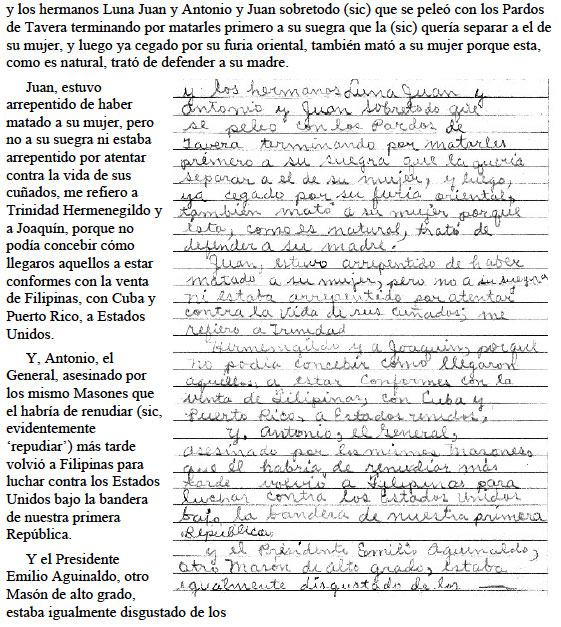 y los hermanos Luna Juan y Antonio y Juan sobretodo (sic) que se peleó con los Pardos
de Tavera terminando por matarles primero a su suegra que la (sic) quería separar a el de
su mujer, y luego ya cegado por su furia oriental, también mató a su mujer porque esta,
como es natural, trató de defender a su madre.
Juan, estuvo
arrepentido de haber
matado a su mujer, pero
no a su suegra ni estaba
arrepentido por atentar
contra la vida de sus
cuñados, me refiero a
Trinidad Hermenegildo y
a Joaquín, porque no
podía concebir cómo
llegaros aquellos a estar
conformes con la venta
de Filipinas, con Cuba y
Puerto Rico, a Estados
Unidos.
Y, Antonio, el
General, asesinado por
los mismo Masones que
el habría de renudiar (sic,
evidentemente
‘repudiar’) más tarde
volvió a Filipinas para
luchar contra los Estados
Unidos bajo la bandera
de nuestra primera
República.
Y el Presidente
Emilio Aguinaldo, otro
Masón de alto grado,
estaba igualmente disgustado de los
y los hermanos Luna Juan y
Antonio y Juan sobretodo que
se peleó con los Pardos de
Tavera terminando por matarles
primero a su suegra que la quería
separar a el de su mujer, y luego,
ya cegado por su furia oriental,
también mató a su mujer porque
ésta, como es natural, trató de
defender a su madre.
Juan, estuvo arrepentido de haber
matado a su mujer, pero no a su suegra
ni estaba arrepentido por atentar
contra la vida de sus cuñados; me
refiero a Trinidad
Hermenegildo y a Joaquín, porque
no podía concebir cómo llegaron
aquellos, a estar conformes con la
venta de Filipinas, con Cuba y
Puerto Rico, a Estados unidos,
Y, Antonio, el General,
asesinado por los mismos Masones,
que él habría de renudiar más
tarde volvió a Filipinas para
luchar contra los Estados Unidos
bajo la bandera de nuestra primera
República.
y el Presidente Emilio Aguinaldo,
otro Masón de alto grado, estaba
igualmente disgustado de los